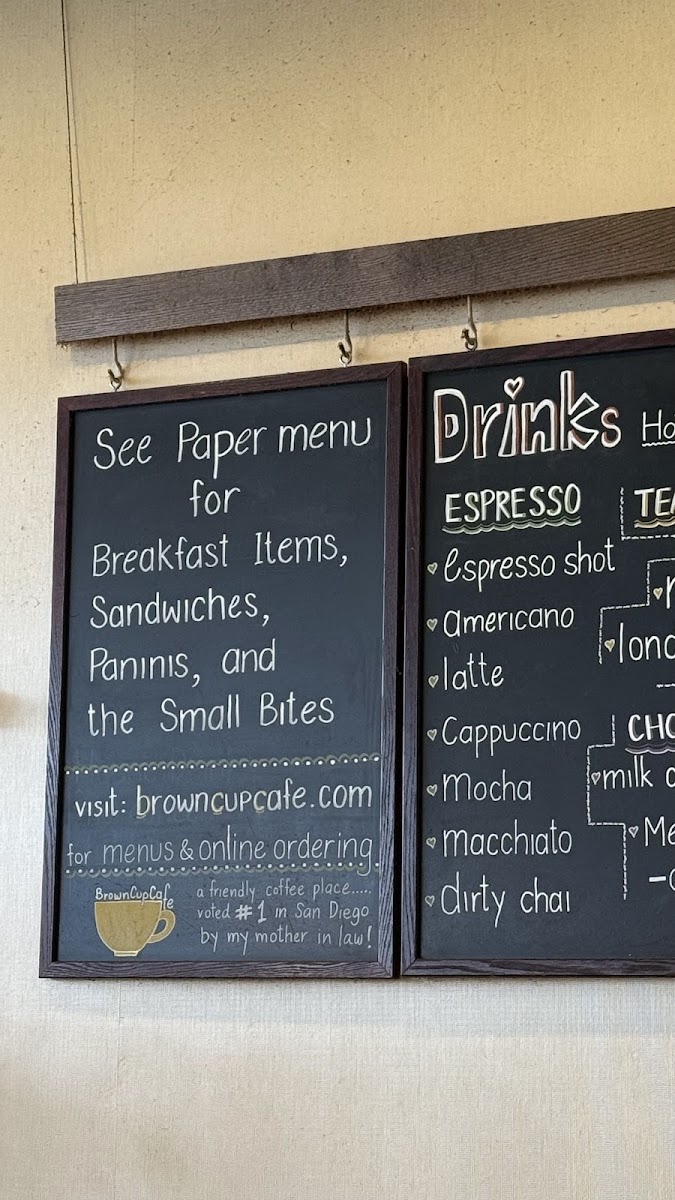 See Paper menu
for
Breakfast Items,
Sandwiches,
Paninis, and
the Small Bites
visit: browncupcafe.com
for menus & online ordering
BrownCupCafe
a friendly coffee place.....
voted #1 in San Diego
by my mother in law!
Drinks
ESPRESSO
espresso shot
americano
latte
Cappuccino
mocha
macchiato
dirty chai
milk